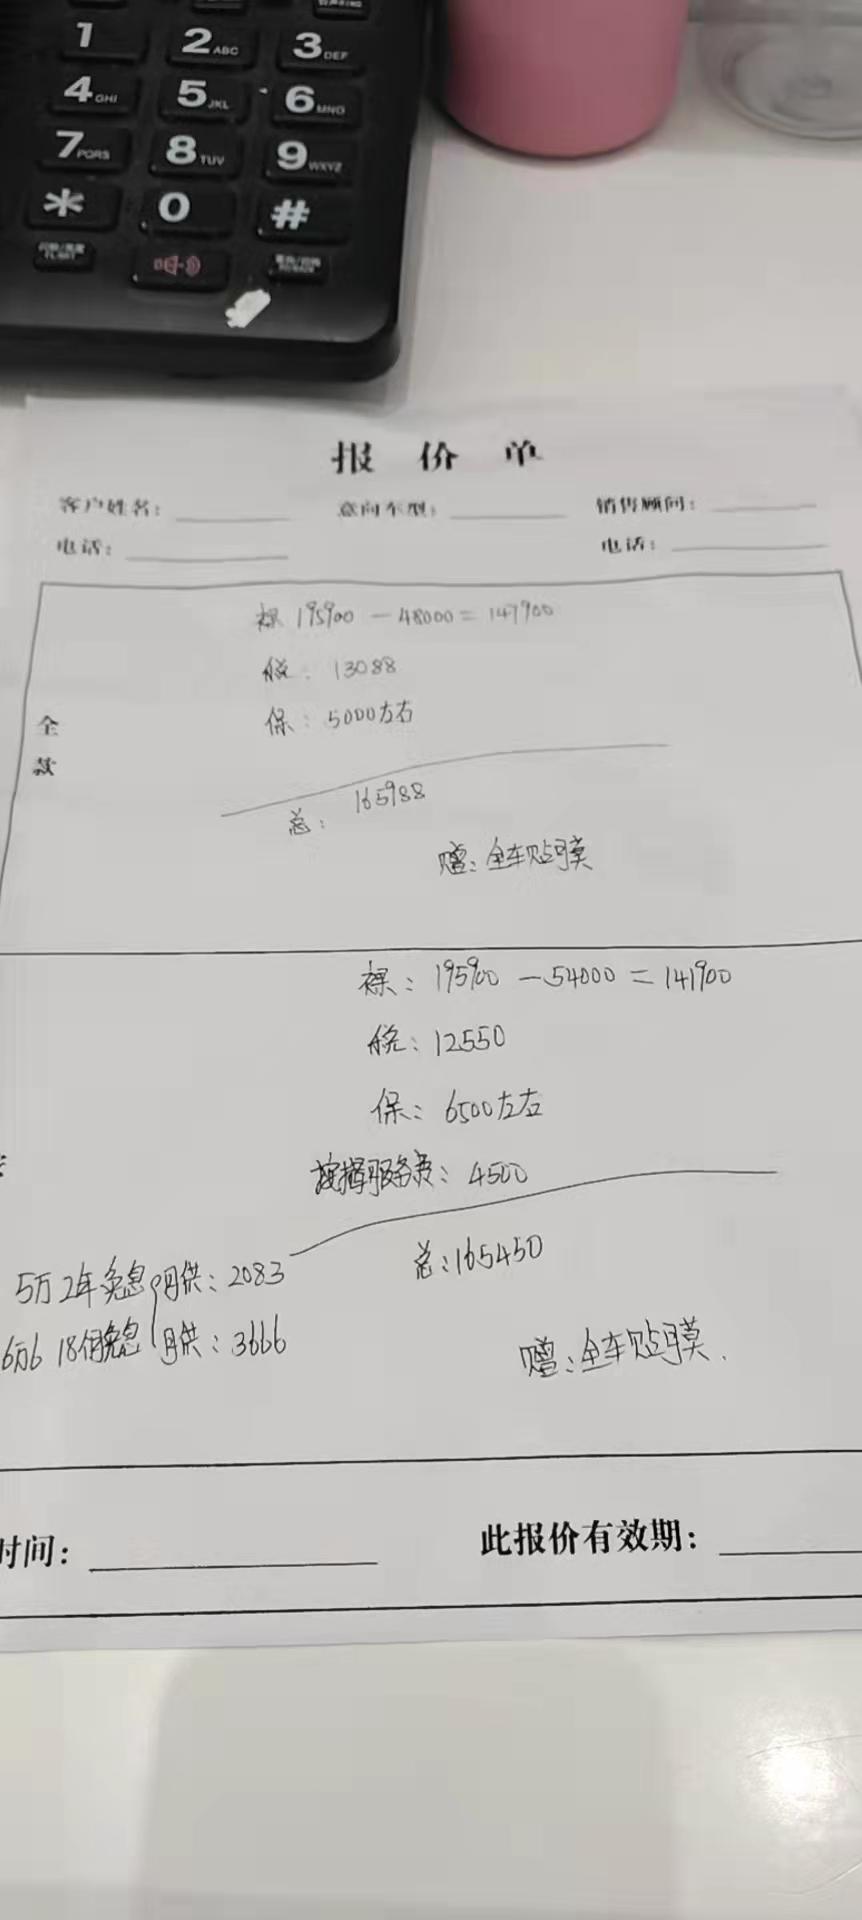 1 2 ABC 3 DEF
4 GHI 5 JKL 6 MNO
7 PQRS 8 TUV 9 WXYZ
* 0 #
报 价 单
客户姓名： 意向车型： 销售顾问：
电话： 电话：
全款
裸 195900 - 48000 = 147900
税： 13088
保： 5000左右
总： 165988
赠：全车贴膜
裸：195900 - 54000 = 141900
税：12550
保：6500左右
按揭服务费：4500
总：165450
5万 2年免息 月供：2083
6万6 18个月免息 月供：3666
赠：全车贴膜.
时间： 此报价有效期：